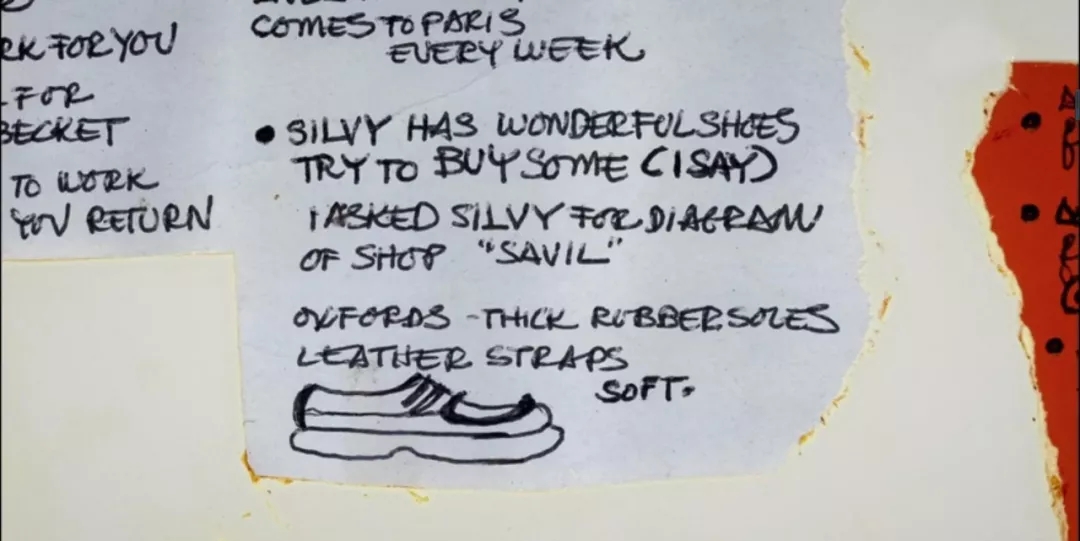 RK FOR YOU
FOR
BECKET
TO WORK
YOU RETURN
COMES TO PARIS
EVERY WEEK
• SILVY HAS WONDERFUL SHOES
TRY TO BUY SOME (I SAY)
I ASKED SILVY FOR DIAGRAM
OF SHOP "SAVIL"
OXFORDS - THICK RUBBER SOLES
LEATHER STRAPS
SOFT.